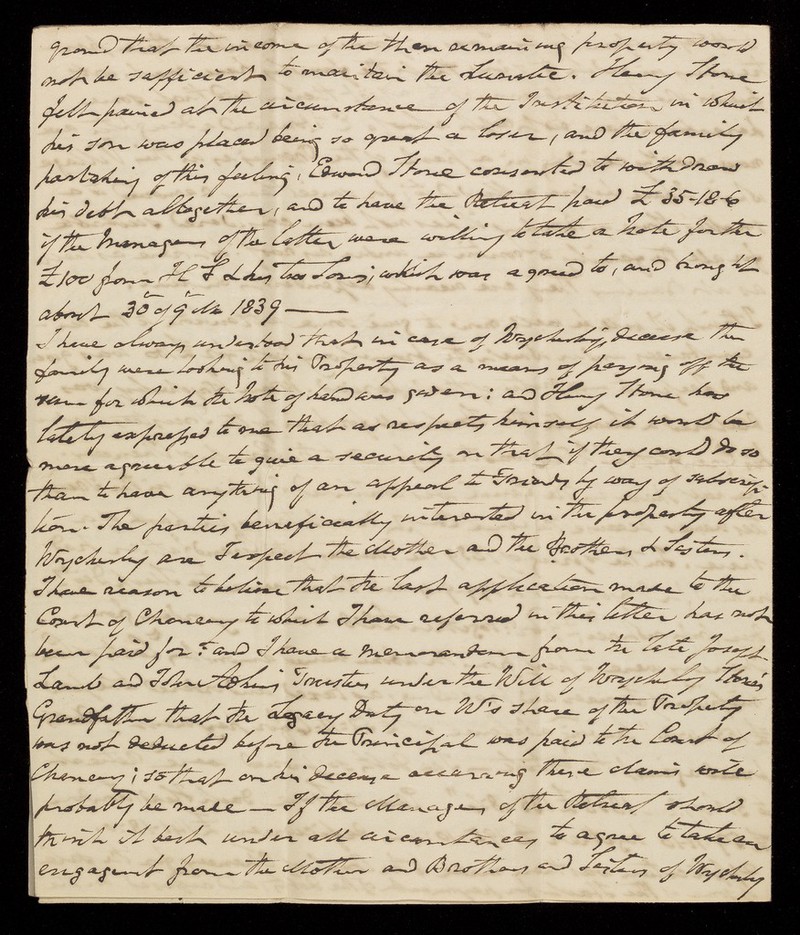 ground that the income of the then remaining property would
not be sufficient to maintain the Lunatic. Henry Stone
felt pained at the circumstance of the Institution in which
his son was placed being so great a loser, and the family
partaking of this feeling, Edward Stone consented to withdraw
his debt altogether, and to have the Retreat paid £35-18-6
if the Managers of the latter were willing to take a Note for the
£100 from H S & his two Sons; which was agreed to, and brought
about 30th of 9th Mo 1839 —
I have always understood that in case of Wycherley's decease the
family were looking to his Property as a means of paying off the
sum for which the Note of hand was given: and Henry Stone has
lately expressed to me that as respects himself it would be
more agreeable to give a security on that if they could do so
than to have anything of an appeal to Friends by way of subscrip-
tion. The parties beneficially interested in the property after
Wycherley are I expect the Mother and the Brothers & Sisters.
I have reason to believe that the last application made to the
Court of Chancery to which I have referred in this letter has not
been paid for: and I have a memorandum from the late Joseph
Lamb and John Adkins Trustees under the Will of Wycherley Stone's
Grandfather that the Legacy Duty on W's share of the Property
was not deducted before the Principal was paid to the Court of
Chancery; so that on his decease occurring these claims will
probably be made — If the Managers of the Retreat should
think it best under all circumstances to agree to take an
engagement from the Mother and Brothers and Sisters of Wycherley